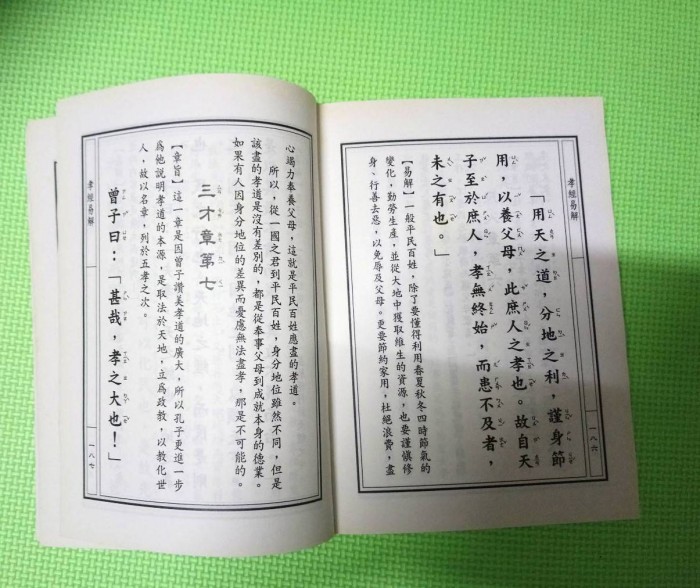 孝經易解
一八六
「用天之道，分地之利，謹身節
用，以養父母，此庶人之孝也。故自天
子至於庶人，孝無終始，而患不及者，
未之有也。」
【易解】一般平民百姓，除了要懂得利用春夏秋冬四時節氣的
變化，勤勞生產，並從大地中獲取維生的資源，也要謹慎修
身、行善去惡，以免辱及父母。更要節約家用，杜絕浪費，盡
心竭力奉養父母，這就是平民百姓應盡的孝道。
所以，從一國之君到平民百姓，身分地位雖然不同，但是
該盡的孝道是沒有差別的，都是從奉事父母到成就本身的德業。
如果有人因身分地位的差異而憂慮無法盡孝，那是不可能的。
三才章第七
【章旨】這一章是因曾子讚美孝道的廣大，所以孔子更進一步
為他說明孝道的本源，是取法於天地，立為政教，以教化世
人，故以名章，列於五孝之次。
曾子曰：「甚哉，孝之大也！」
孝經易解
一八七